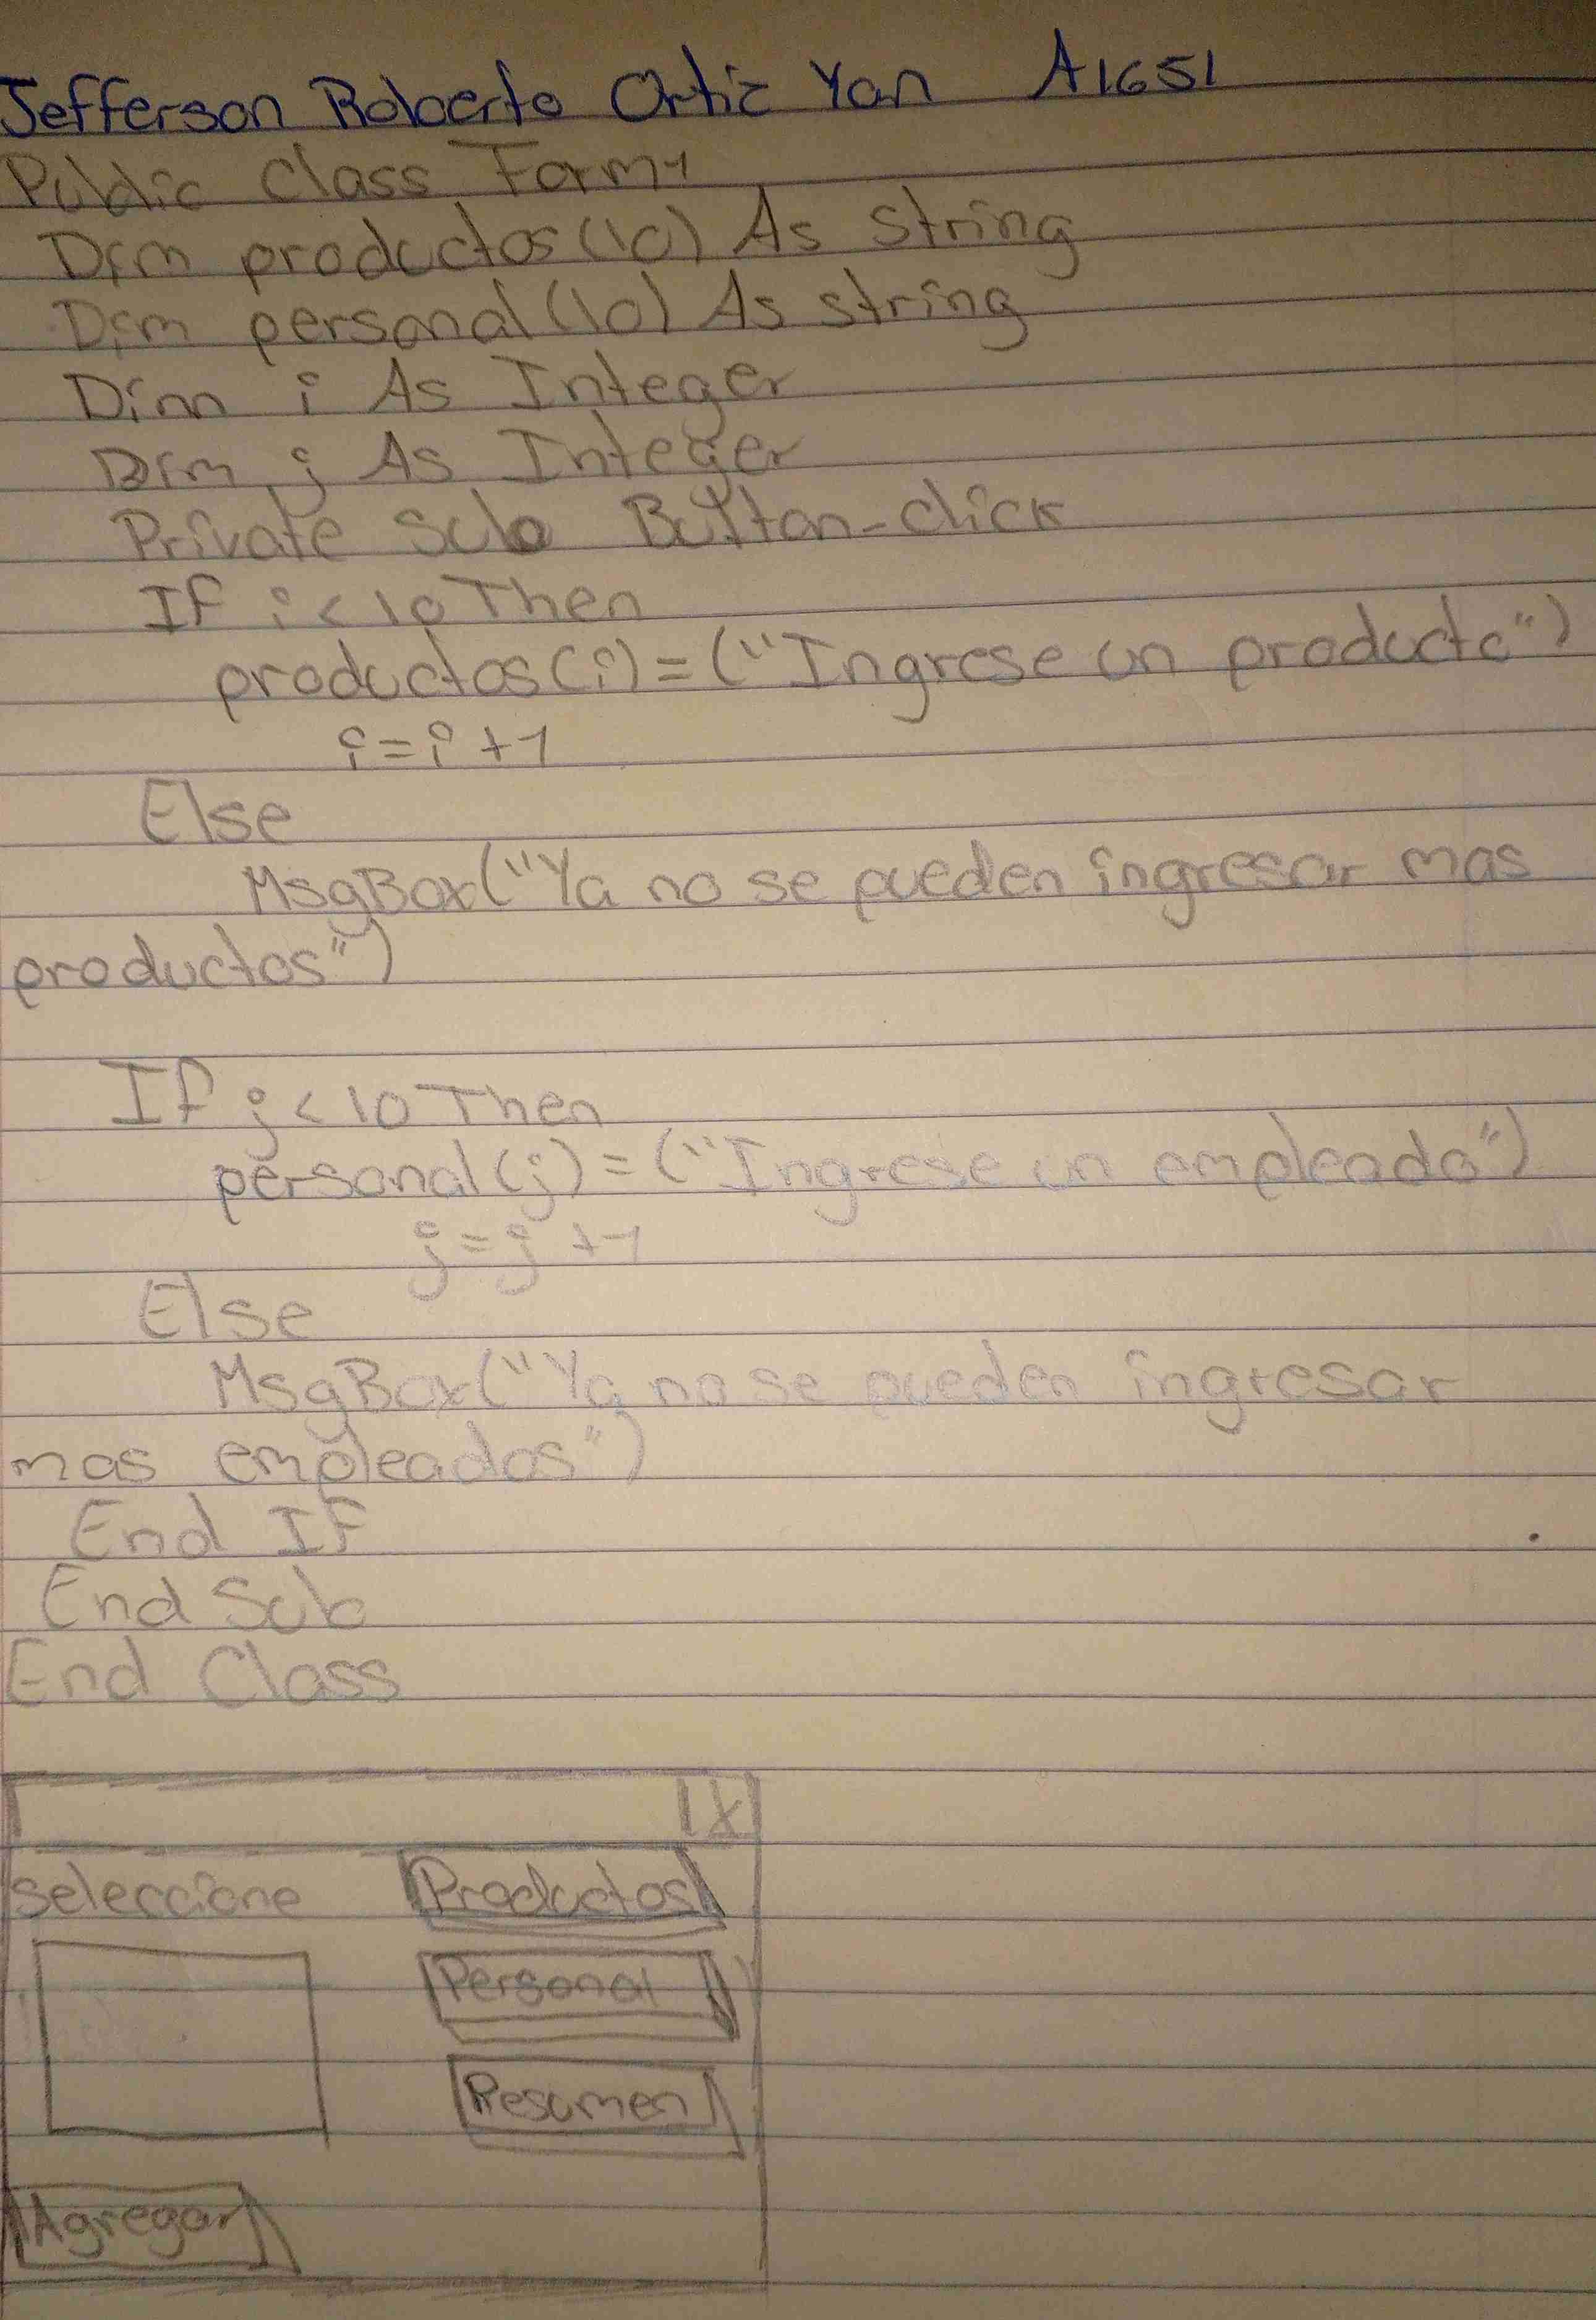 Jefferson Roberto Ortiz Yan A1651
Public Class Form1
Dim productos(10) As string
Dim personal(10) As string
Dim i As Integer
Dim j As Integer
Private Sub Button-click
If i<10 Then
productos(i)=("Ingrese un producto")
i=i+1
Else
MsgBox("Ya no se pueden ingresar mas
productos")
If j<10 Then
personal(j)=("Ingrese un empleado")
j=j+1
Else
MsgBox("Ya no se pueden ingresar
mas empleados")
End IF
End Sub
End Class
X
Seleccione Productos
Personal
Resumen
Agregar